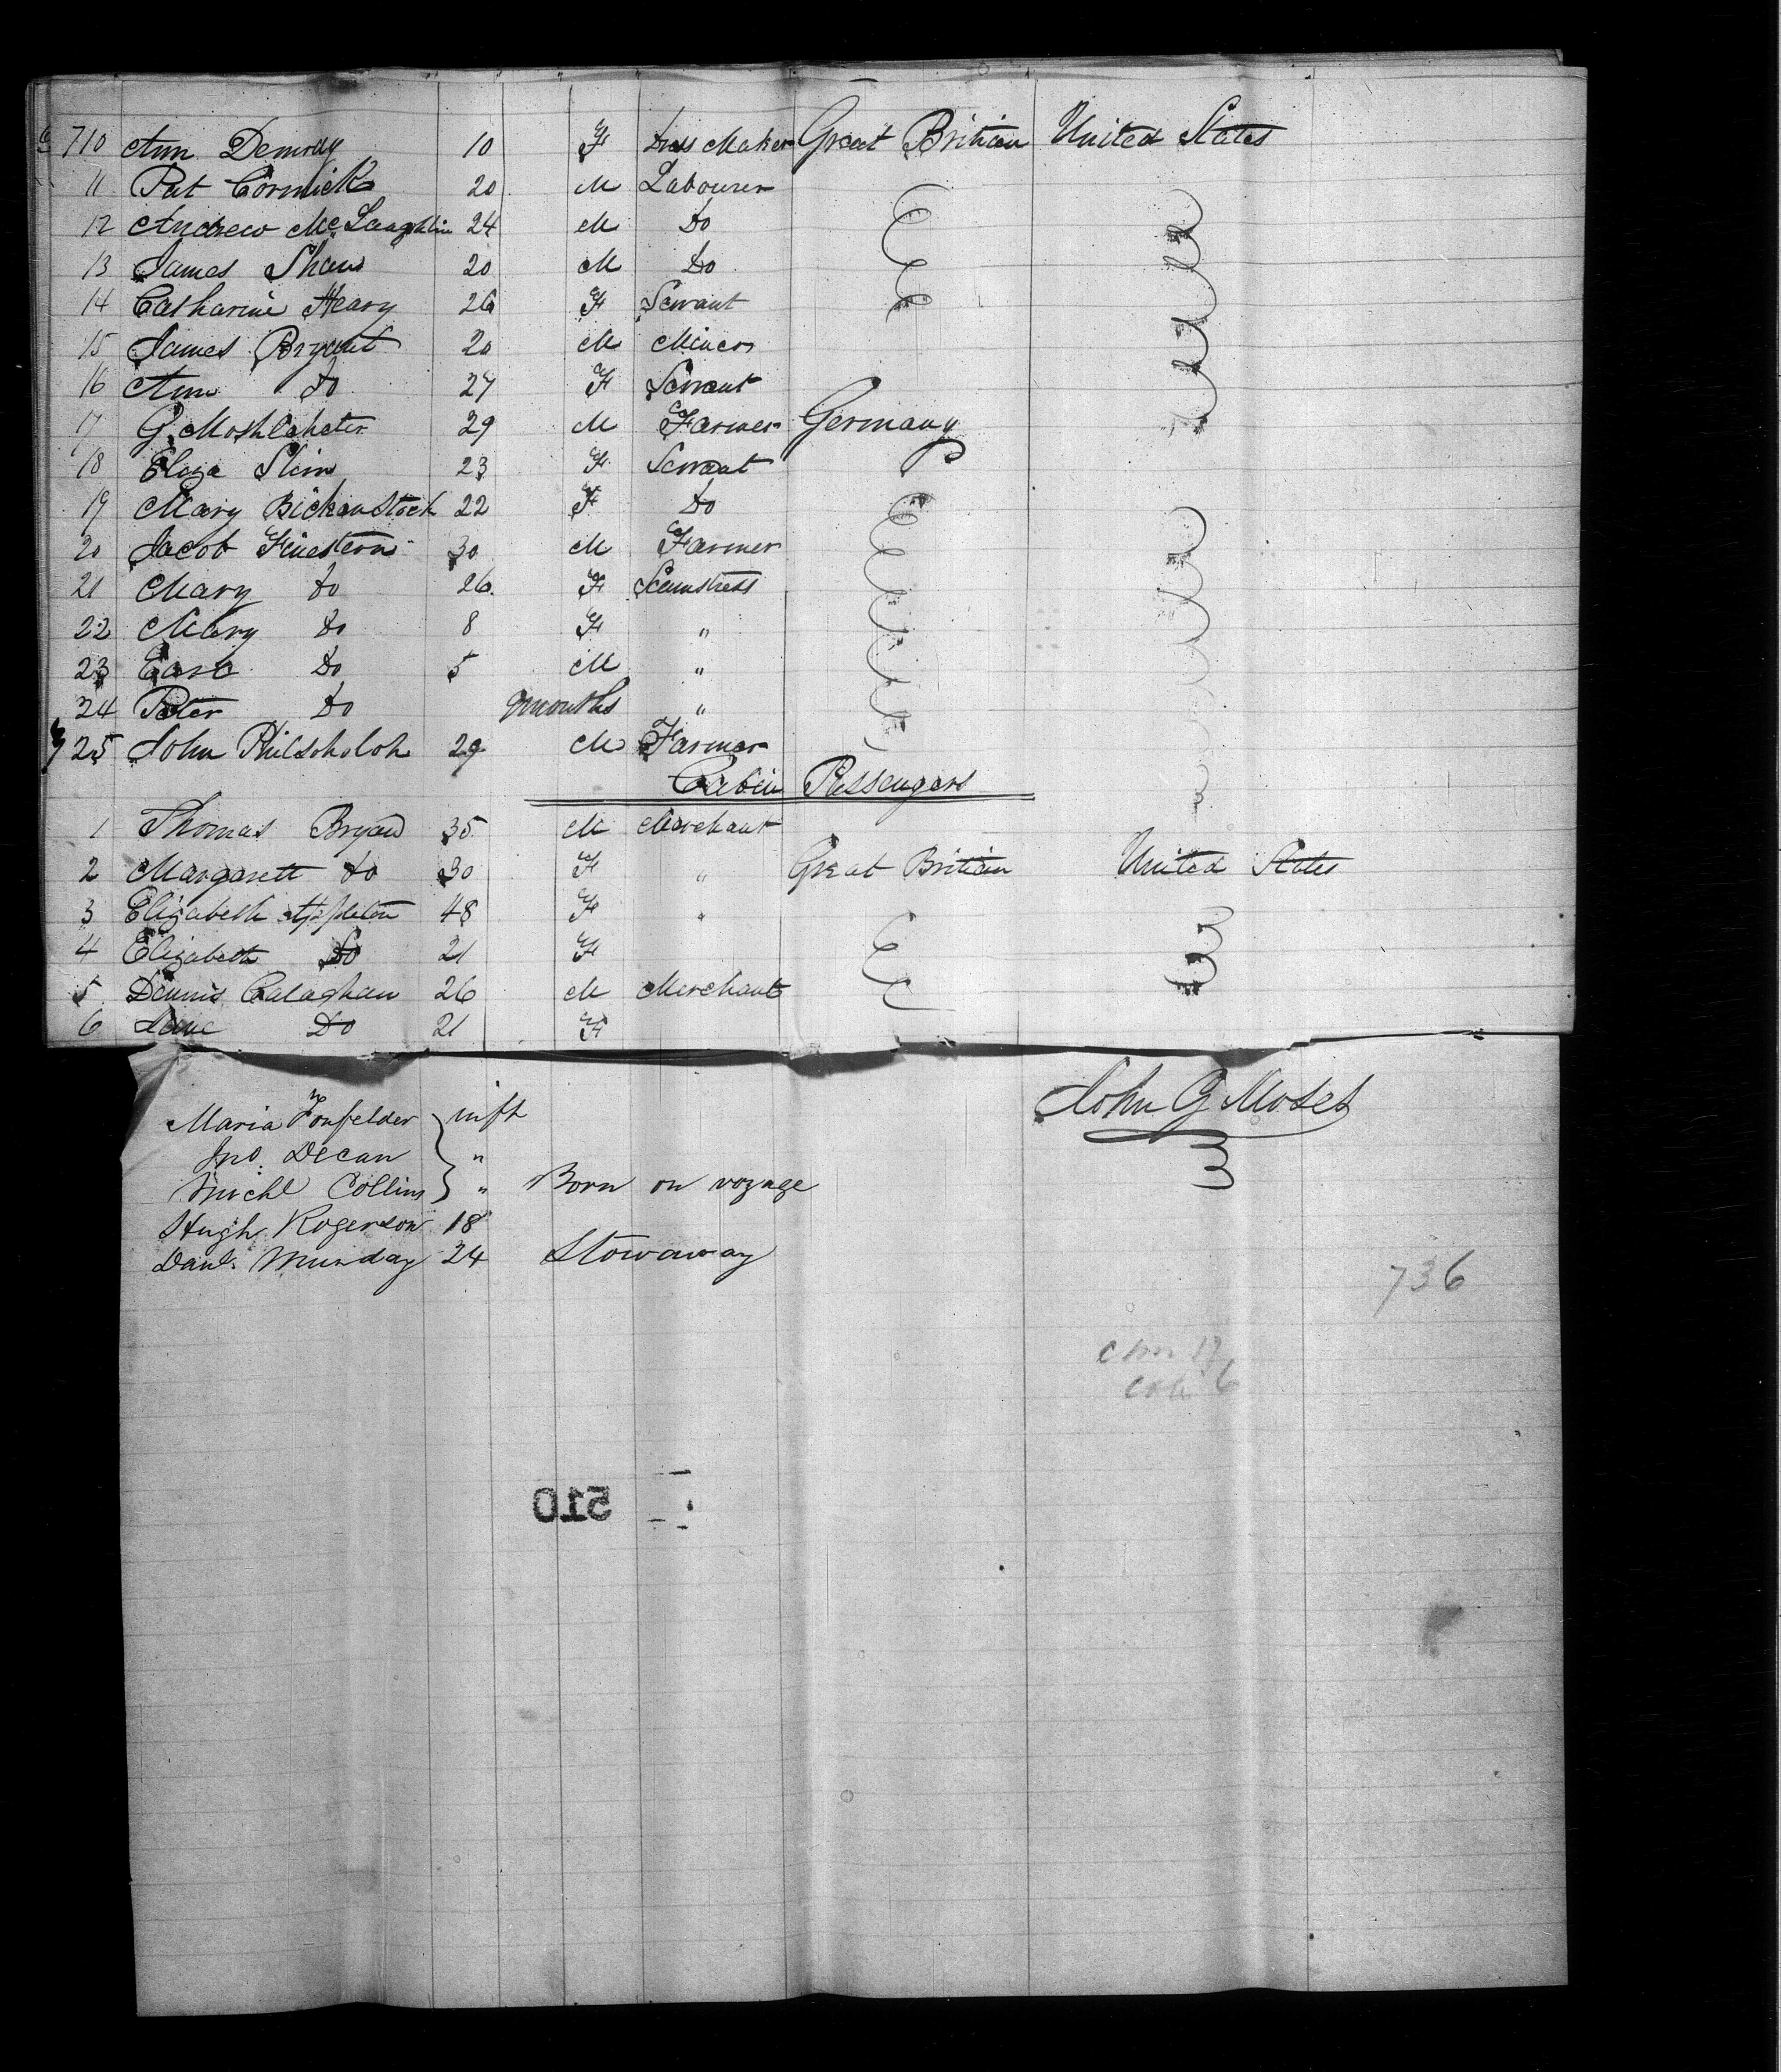 710 Ann Demody 10 F Dress Maker Great Britian United States
11 Pat Cormick 20 M Labourer
12 Andrew McLaughlin 24 M Do
13 James Shaw 20 M Do
14 Catharine Heavy 26 F Servant
15 James Bryant 20 M Miner
16 Ann Do 27 F Servant
17 G. Moshleheter 29 M Farmer Germany
18 Eliza Slein 23 F Servant
19 Mary Bickenstock 22 F Do
20 Jacob Finestern 30 M Farmer
21 Mary Do 26 F Seamstress
22 Mary Do 8 F "
23 Earl Do 5 M "
24 Peter Do 9 months "
725 John Philsoholoh 29 M Farmer
Cabin Passengers
1 Thomas Bryan 35 M Merchant
2 Margarett Do 30 F " Great Britian United States
3 Elizabeth Appleton 48 F "
4 Elizabeth Do 21 F
5 Dennis Calaghan 26 M Merchant
6 Jane Do 21 F
John G Moses
Maria Fonfelder inft
Jno. Decan "
Michl Collins " Born on voyage
Hugh Rogerson 18
Danl. Munday 24 Stowaway
736
510